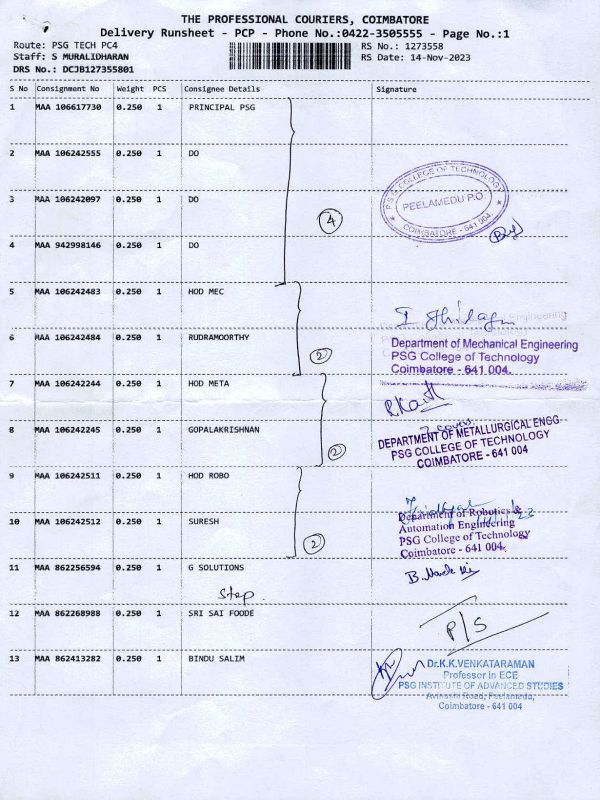 THE PROFESSIONAL COURIERS, COIMBATORE
Delivery Runsheet - PCP - Phone No.:0422-3505555 - Page No.:1
Route: PSG TECH PC4
RS No.: 1273558
Staff: S MURALIDHARAN
RS Date: 14-Nov-2023
DRS No.: DCJB127355801
S No Consignment No Weight PCS Consignee Details Signature
1 MAA 106617730 0.250 1 PRINCIPAL PSG
2 MAA 106242555 0.250 1 DO
P.S.G. COLLEGE OF TECHNOLOGY
PEELAMEDU P.O.
COIMBATORE - 641 004
3 MAA 106242097 0.250 1 DO
4
4 MAA 942998146 0.250 1 DO
5 MAA 106242483 0.250 1 HOD MEC
6 MAA 106242484 0.250 1 RUDRAMOORTHY
2
Department of Mechanical Engineering
PSG College of Technology
Coimbatore - 641 004.
7 MAA 106242244 0.250 1 HOD META
8 MAA 106242245 0.250 1 GOPALAKRISHNAN
2
DEPARTMENT OF METALLURGICAL ENGG.
PSG COLLEGE OF TECHNOLOGY
COIMBATORE - 641 004
9 MAA 106242511 0.250 1 HOD ROBO
10 MAA 106242512 0.250 1 SURESH
2
Department of Robotics &
Automation Engineering
PSG College of Technology
Coimbatore - 641 004.
11 MAA 862256594 0.250 1 G SOLUTIONS
Step
12 MAA 862268988 0.250 1 SRI SAI FOODE
P/S
13 MAA 862413282 0.250 1 BINDU SALIM
Dr.K.K.VENKATARAMAN
Professor in ECE
PSG INSTITUTE OF ADVANCED STUDIES
Avinashi Road, Peelamedu,
Coimbatore - 641 004